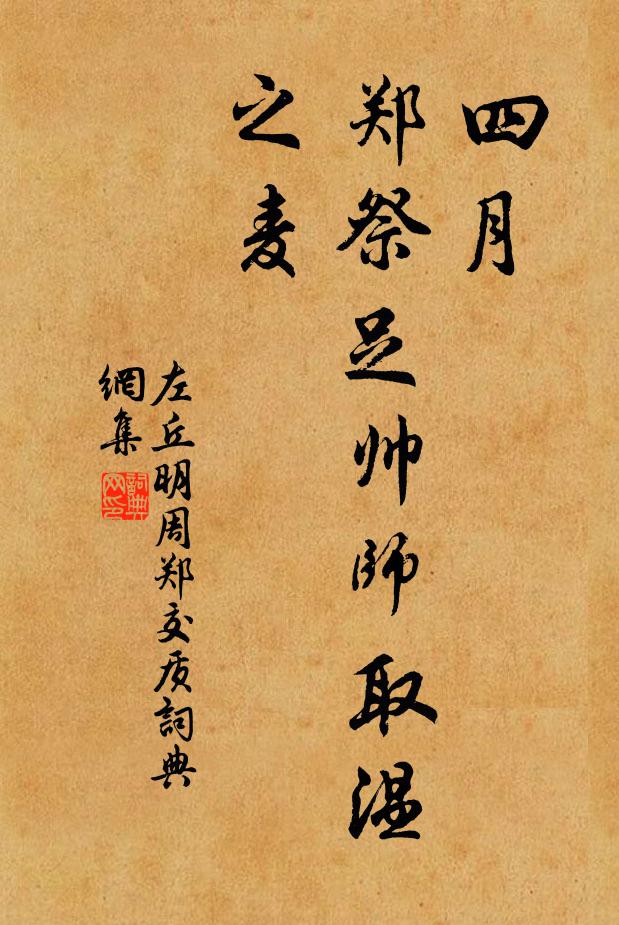 四月
郑祭足帅師取温
之麦
左丘明周郑交质詞典
網集
詞典
网印